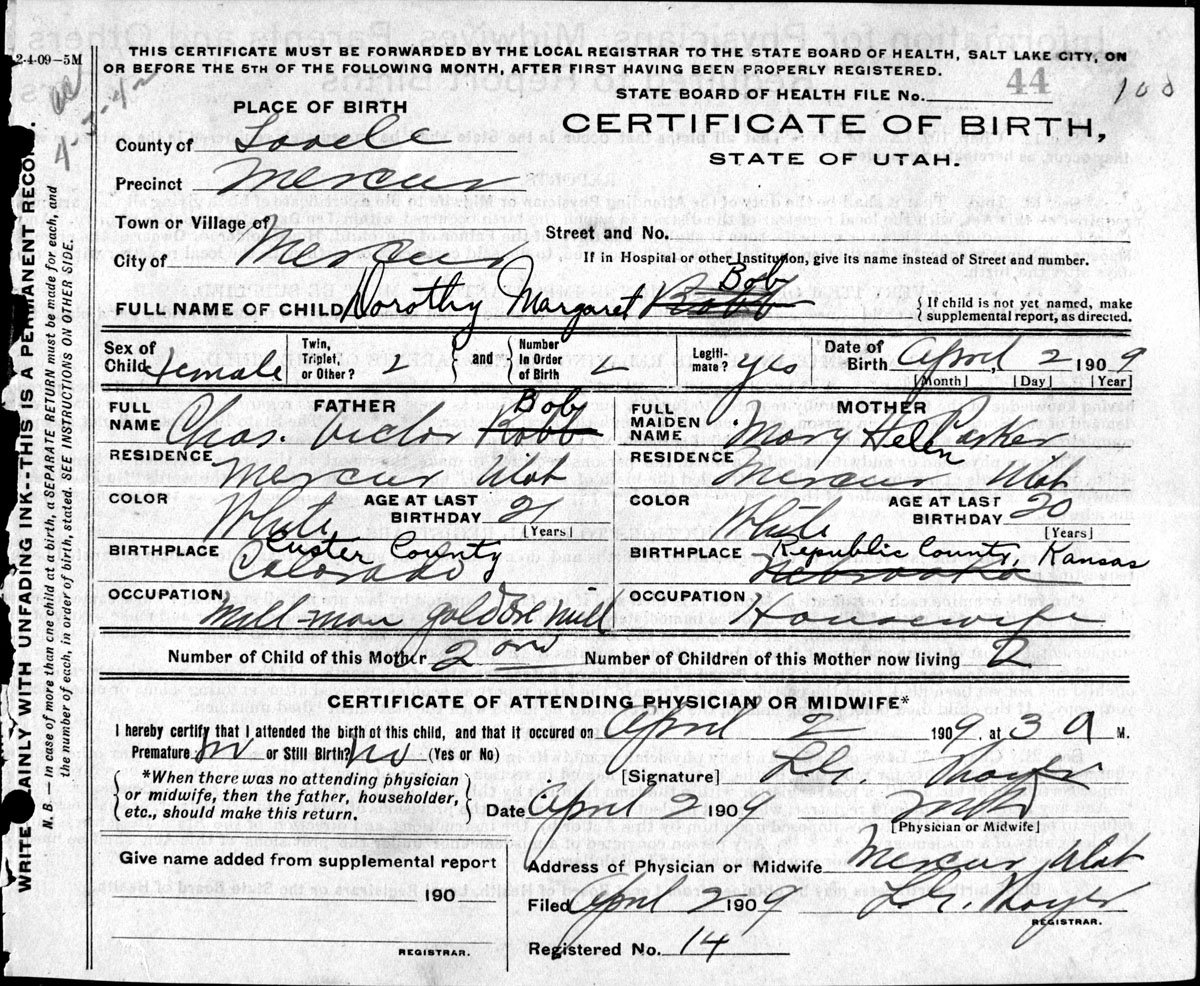 2-4-09-5M
THIS CERTIFICATE MUST BE FORWARDED BY THE LOCAL REGISTRAR TO THE STATE BOARD OF HEALTH, SALT LAKE CITY, ON
OR BEFORE THE 5TH OF THE FOLLOWING MONTH, AFTER FIRST HAVING BEEN PROPERLY REGISTERED.
STATE BOARD OF HEALTH FILE No. 44
100
PLACE OF BIRTH
CERTIFICATE OF BIRTH,
STATE OF UTAH.
County of
Precinct Mercur
Town or Village of
City of Mercur
Street and No.
If in Hospital or other Institution, give its name instead of Street and number.
Bob
FULL NAME OF CHILD Dorothy Margaret Bobb
{ If child is not yet named, make
supplemental report, as directed.
Sex of Child Female
Twin, Triplet, or Other? 2 } and { Number In Order of Birth 2
Legiti- mate? yes
Date of Birth April, 2 1909
[Month] [Day] [Year]
FATHER
FULL NAME Chas. Victor Bobb
Bob
RESIDENCE Mercur Utah
COLOR White
AGE AT LAST BIRTHDAY 21
[Years]
BIRTHPLACE Custer County
Colorado
OCCUPATION Mill-man gold ore mill
MOTHER
FULL MAIDEN NAME Mary Helen Parker
RESIDENCE Mercur Utah
COLOR White
AGE AT LAST BIRTHDAY 20
[Years]
BIRTHPLACE Republic County, Kansas
Nebraska
OCCUPATION Housewife
Number of Child of this Mother 2
Number of Children of this Mother now living 2
CERTIFICATE OF ATTENDING PHYSICIAN OR MIDWIFE*
I hereby certify that I attended the birth of this child, and that it occured on April 2 1909, at 3 A M.
Premature? No or Still Birth? No (Yes or No)
{ *When there was no attending physician
or midwife, then the father, householder,
etc., should make this return. }
[Signature] Thayer
Date April 2 1909
[Physician or Midwife]
Give name added from supplemental report
190
REGISTRAR.
Address of Physician or Midwife Mercur Utah
Filed April 2 1909
Thayer
REGISTRAR.
Registered No. 14
AINLY WITH UNFADING INK--THIS IS A PERMANENT RECOR
WRITE
N. B. — In case of more than one child at a birth, a SEPARATE RETURN must be made for each, and
the number of each, in order of birth, stated. SEE INSTRUCTIONS ON OTHER SIDE.